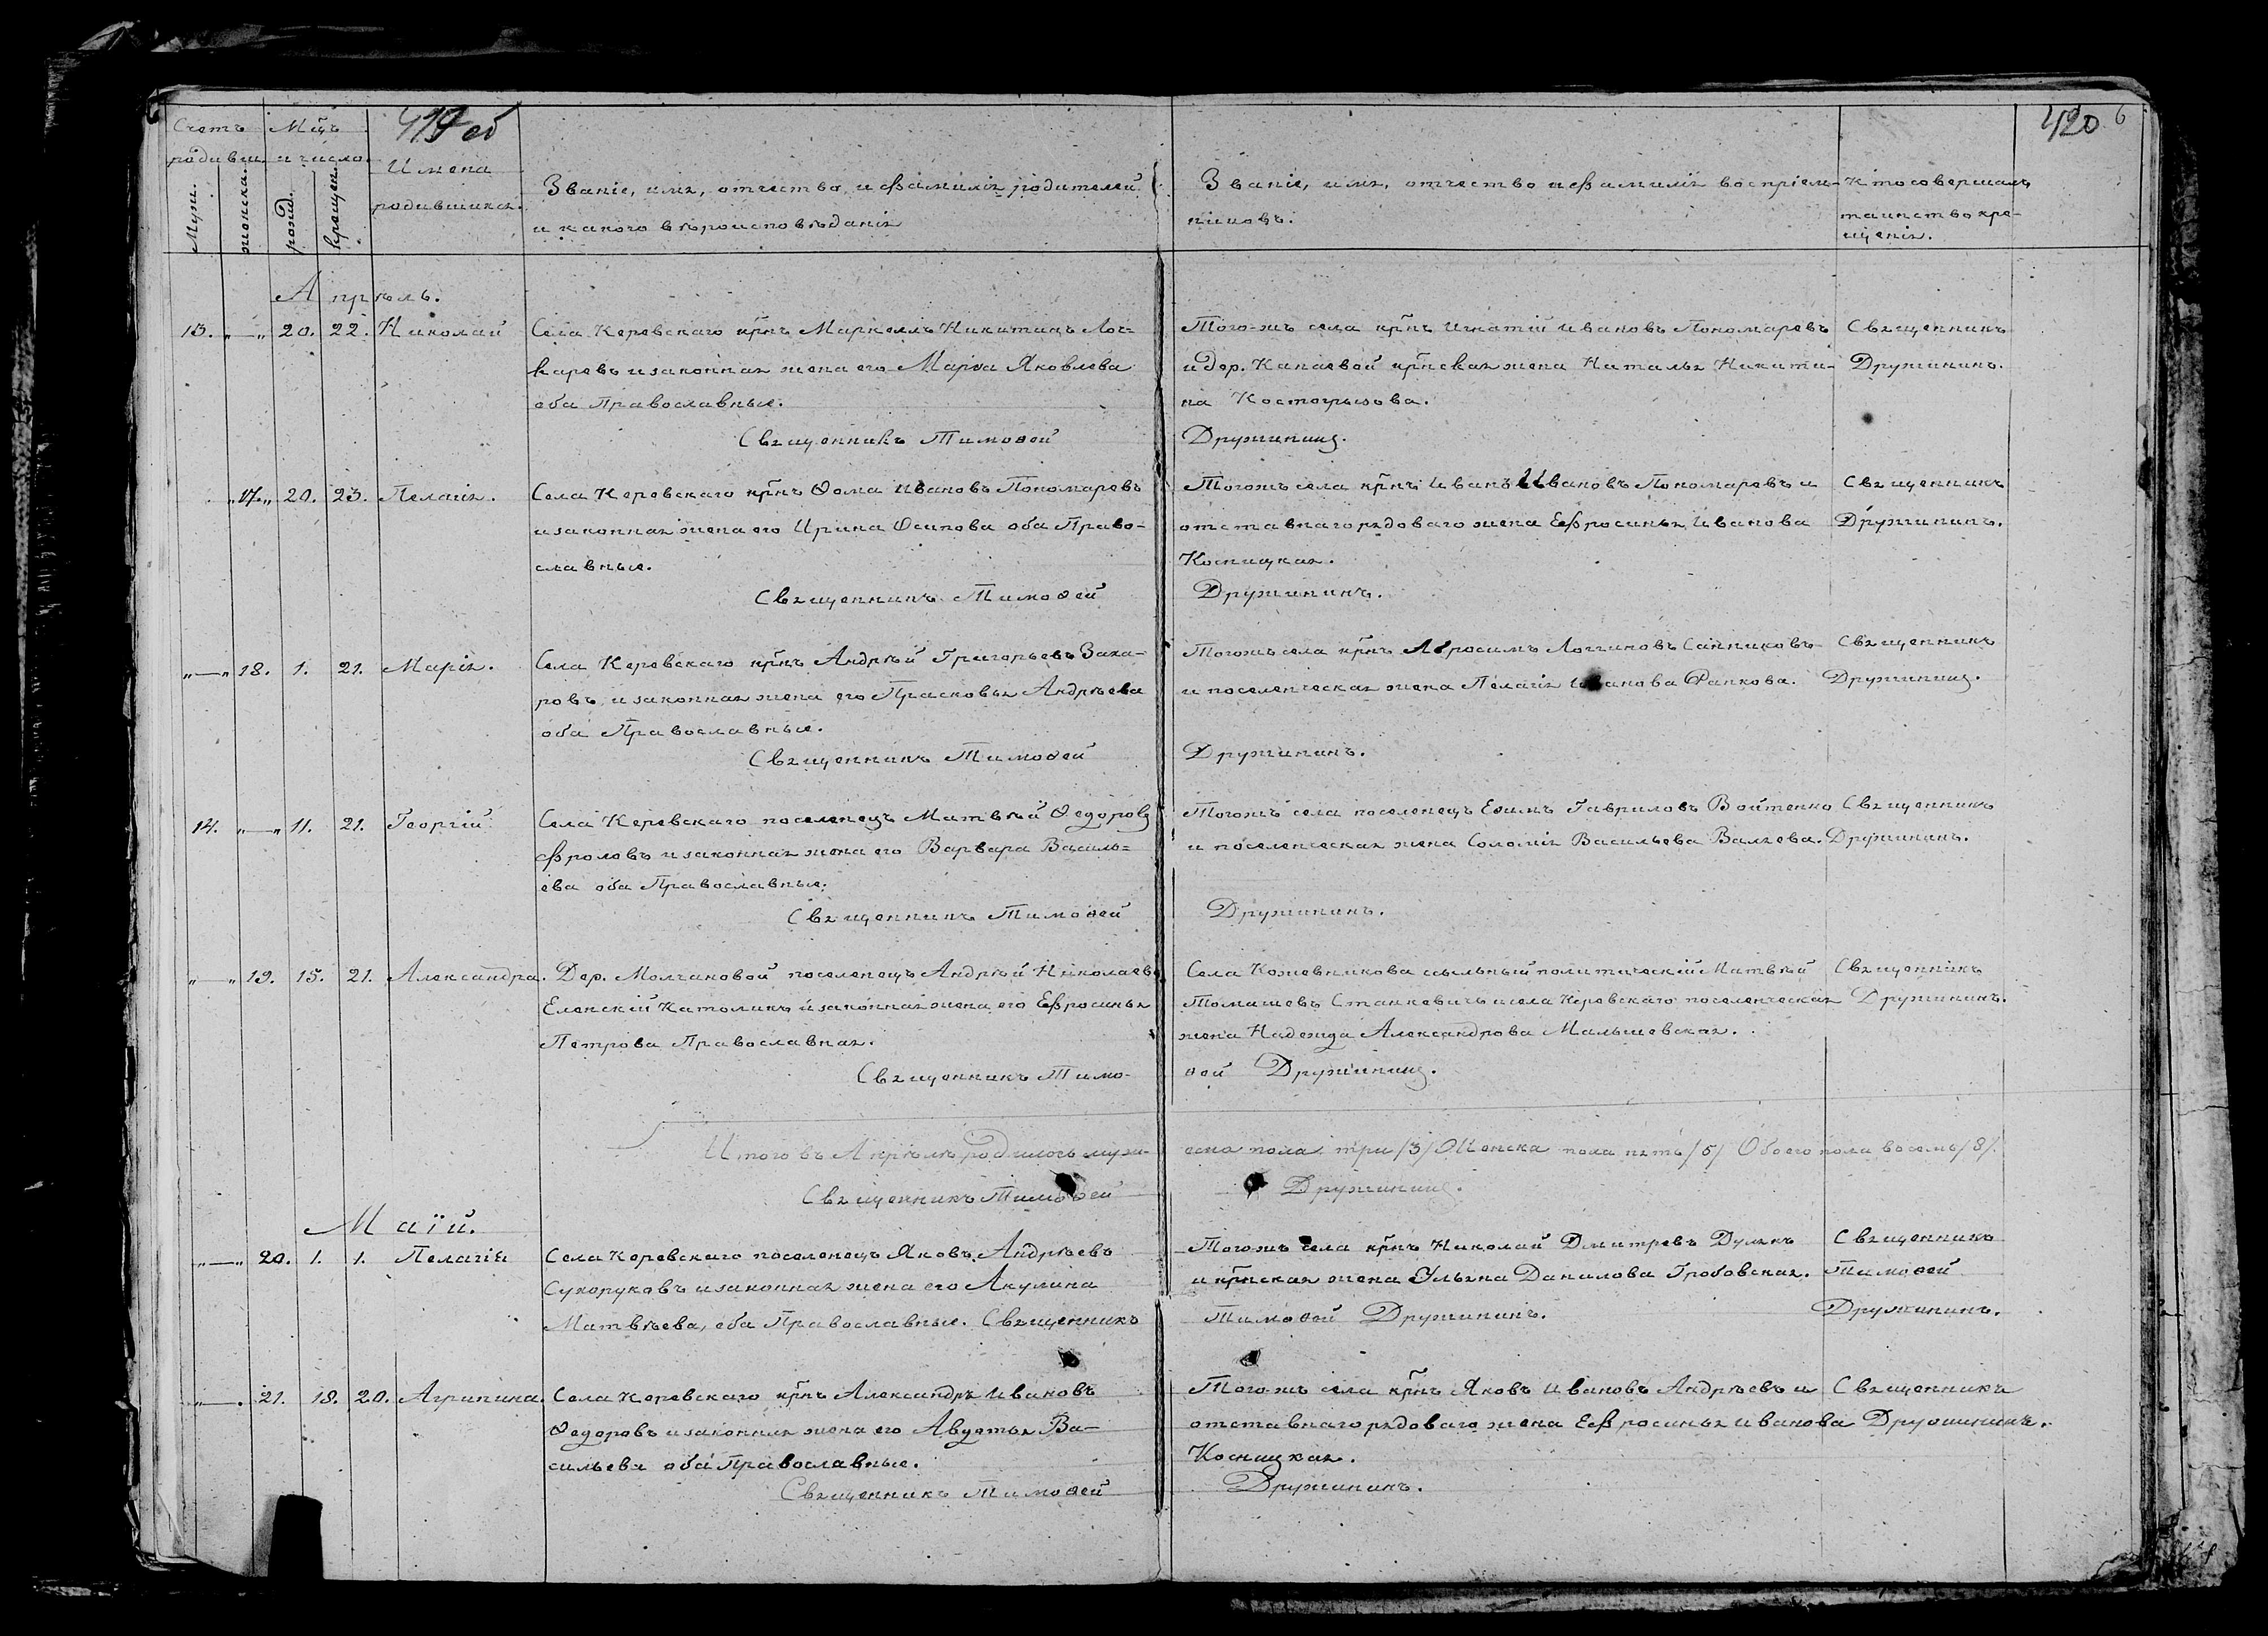 Счетъ родивш. Мцъ и число. 419 об
Муж. женска. рожд. крещен.
Имена родившихся.
Званіе, имя, отчество и фамилія родителей
и какого вѣроисповѣданія
Званіе, имя, отчество и фамилія воспріем-
никовъ.
Кто совершалъ
таинство кре-
щенія.
420 6
Апрѣль.
13. „—„ 20. 22. Николай
Села Керевскаго крнъ Маркеллъ Никитинъ
и законная жена его Марѳа Яковлева
оба Православные.
Священникъ Тимоѳей
Того-жъ села крнъ Игнатій Ивановъ Пономаревъ
и дер. Канаевой крнская жена Наталья Никити-
на Костогрызова.
Дружининъ.
Священникъ
Дружининъ.
„17.„ 20. 23. Пелагія.
Села Керевскаго крнъ Ѳома Ивановъ Пономаревъ
и законная жена его Ирина Осипова оба Право-
славные.
Священникъ Тимоѳей
Тогожъ села крнъ Иванъ Ивановъ Пономаревъ и
отставнаго рядоваго жена Ефросинья Иванова
Косницкая.
Дружининъ.
Священникъ
Дружининъ.
„—„ 18. 1. 21. Марія.
Села Керевскаго крнъ Андрѣй Григорьевъ Заха-
ровъ и законная жена его Прасковья Андрѣева
оба Православные.
Священникъ Тимоѳей
Тогожъ села крнъ Абросимъ Логгиновъ Санниковъ
и поселенческая жена Пелагія Иванова Фанкова.
Дружининъ.
Священникъ
Дружининъ.
14. „—„ 11. 21. Георгій
Села Керевскаго поселенецъ Матвѣй Ѳедоровъ
Фроловъ и законная жена его Варвара Василь=
ева оба Православные.
Священникъ Тимоѳей
Тогожъ села поселенецъ Ефимъ Гавриловъ Войтенко
и поселенческая жена Соломія Васильева Валяева.
Дружининъ.
Священникъ
Дружининъ.
„—„ 19. 15. 21. Александра.
Дер. Молчановой поселенецъ Андрѣй Николаевъ
Еленскій Католикъ и законная жена его Ефросинья
Петрова Православная.
Священникъ Тимо-
Села Кожевникова ссыльный политическій Матвѣй
Томашевъ Станкевичъ и села Керевскаго поселенческая
жена Надежда Александрова Малышевская.
ѳей Дружининъ.
Священникъ
Дружининъ.
Итого въ Апрѣлѣ родилось муж-
ска пола три /3/ Женска пола пять /5/ Обоего пола восемь /8/.
Священникъ Тимоѳей
Дружининъ.
Маій.
„—„ 20. 1. 1. Пелагія
Села Керевскаго поселенецъ Яковъ Андрѣевъ
Сухоруковъ и законная жена его Акулина
Матвѣева, оба Православные. Священникъ
Тогожъ села крнъ Николай Дмитревъ Дулянъ
и крнская жена Ульяна Данилова Гробовская.
Тимоѳей Дружининъ.
Священникъ
Тимоѳей
Дружининъ.
„—. 21. 18. 20. Агрипина.
Села Керевскаго крнъ Александръ Ивановъ
Ѳедоровъ и законная жена его Авдотья Ва-
сильева оба Православные.
Священникъ Тимоѳей
Того-жъ села крнъ Яковъ Ивановъ Андрѣевъ и
отставнаго рядоваго жена Ефросинья Иванова
Косницкая.
Дружининъ.
Священникъ
Дружининъ.